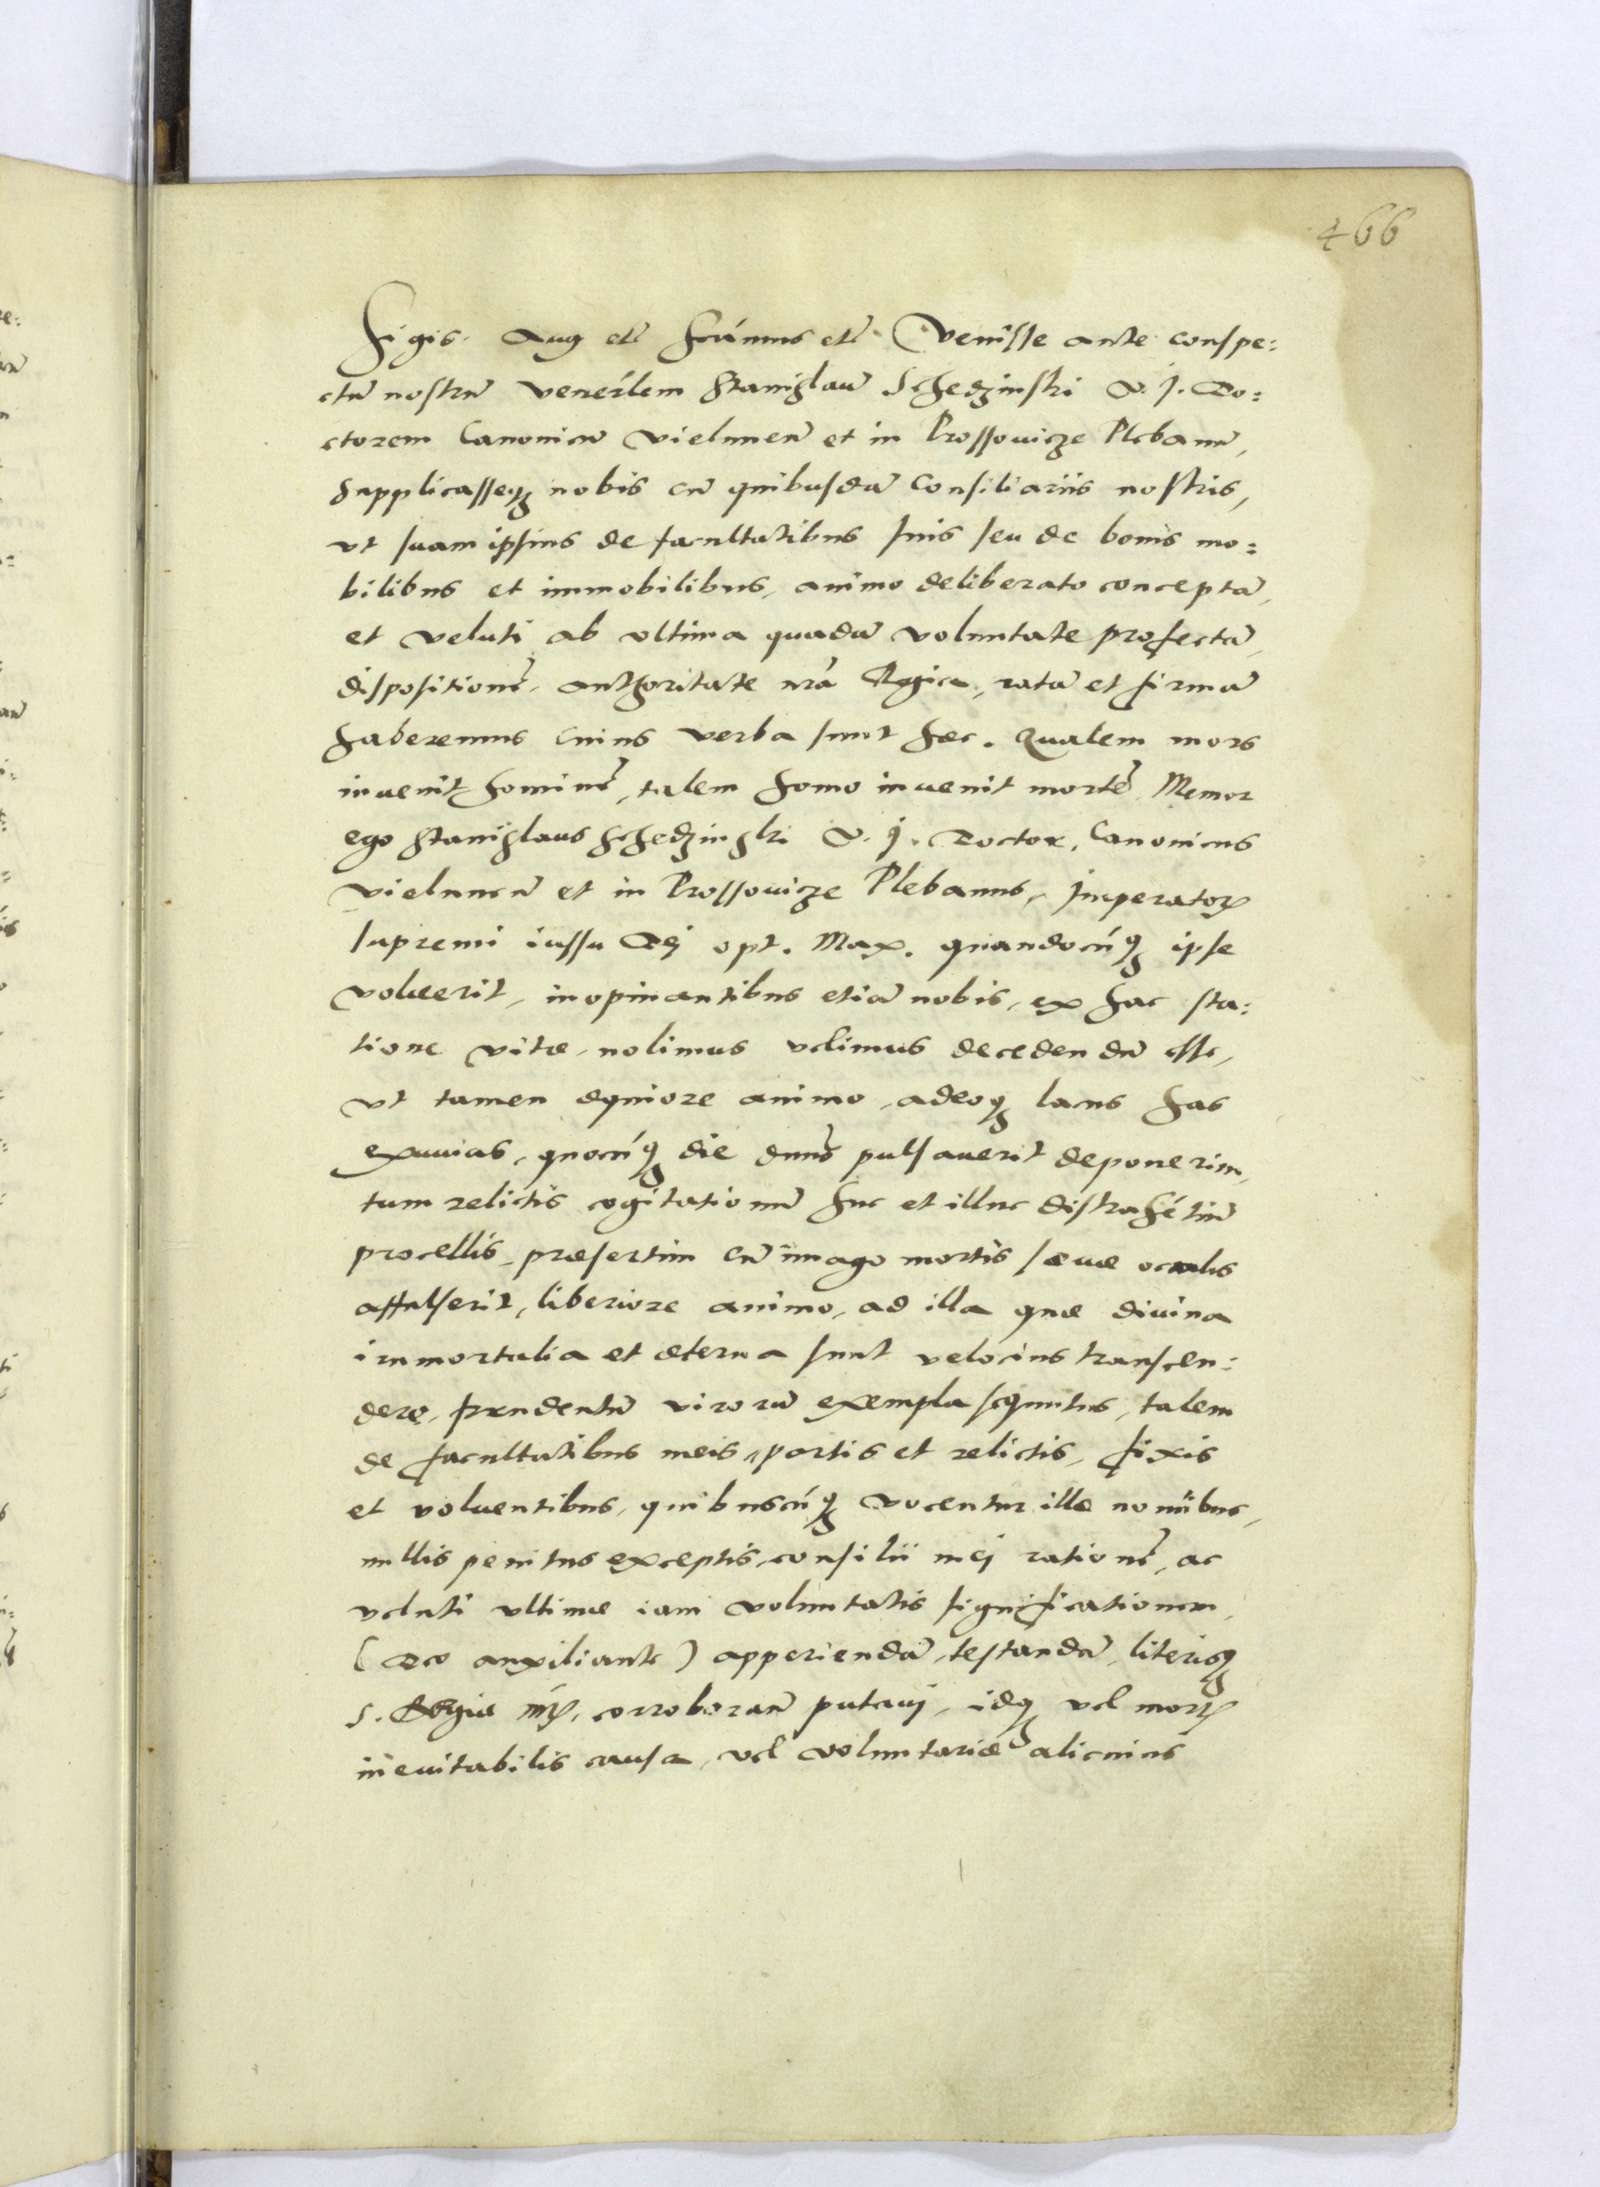 466
Sigis. Aug etc̃ Scimus etc̃ Venisse ante conspe:
ctũ nostrũ venerílem Stanislaũ Schedzinski V. J. Do:
ctorem Canonicũ vielunen̄ et in Prossovicze Plebanũ,
supplicasseq3 nobis cũ quibusdã Consiliariis nostris,
ut suam ipsius de facultatibus suis seu de bonis mo:
bilibus et immobilibus, animo deliberato conceptã,
et veluti ab ultima quadã voluntate profectã,
dispositionẽ, authoritate nrã Regia, ratã et firmã
haberemus Cuius verba sunt hæc. Qualem mors
invenit hominẽ, talem homo invenit mortẽ. Memor
ego Stanislaus Schedzinski V. J. Doctor, Canonicus
vielunen̄ et in Prossovicze Plebanus, Imperatoris
supremi iussu Dej opt. Max. quandocũq3 ipse
volverit, inopinantibus etiã nobis, ex hac sta:
tione vitæ, nolimus velimus decedendũ esse,
ut tamen æquiore animo, adeoq3 lætus has
exuvias, quocũq3 die dnũs pulsaverit deponerim,
tum relictis cogitationũ huc et illuc distrahẽtiũ
procellis, præsertim cũ imago mortis sævæ oculis
affulserit, liberiore animo, ad illa quæ divina
immortalia et æterna sunt velocius transcen:
dere, prudentũ virorũ exempla sequutus, talem
de facultatibus meis, portis et relictis, fixis
et volventibus, quibuscũq3 vocentur illæ noĩibus,
nullis penitus exceptis, consilii mej rationẽ, ac
veluti ultimæ iam voluntatis significationem,
(Deo auxiliante) apperiendã, testandã, literisq3
S. Regiæ M̃tis, corroboranã putavj, idq3 vel mortis
inevitabilis causa, vel voluntariæ alicuius